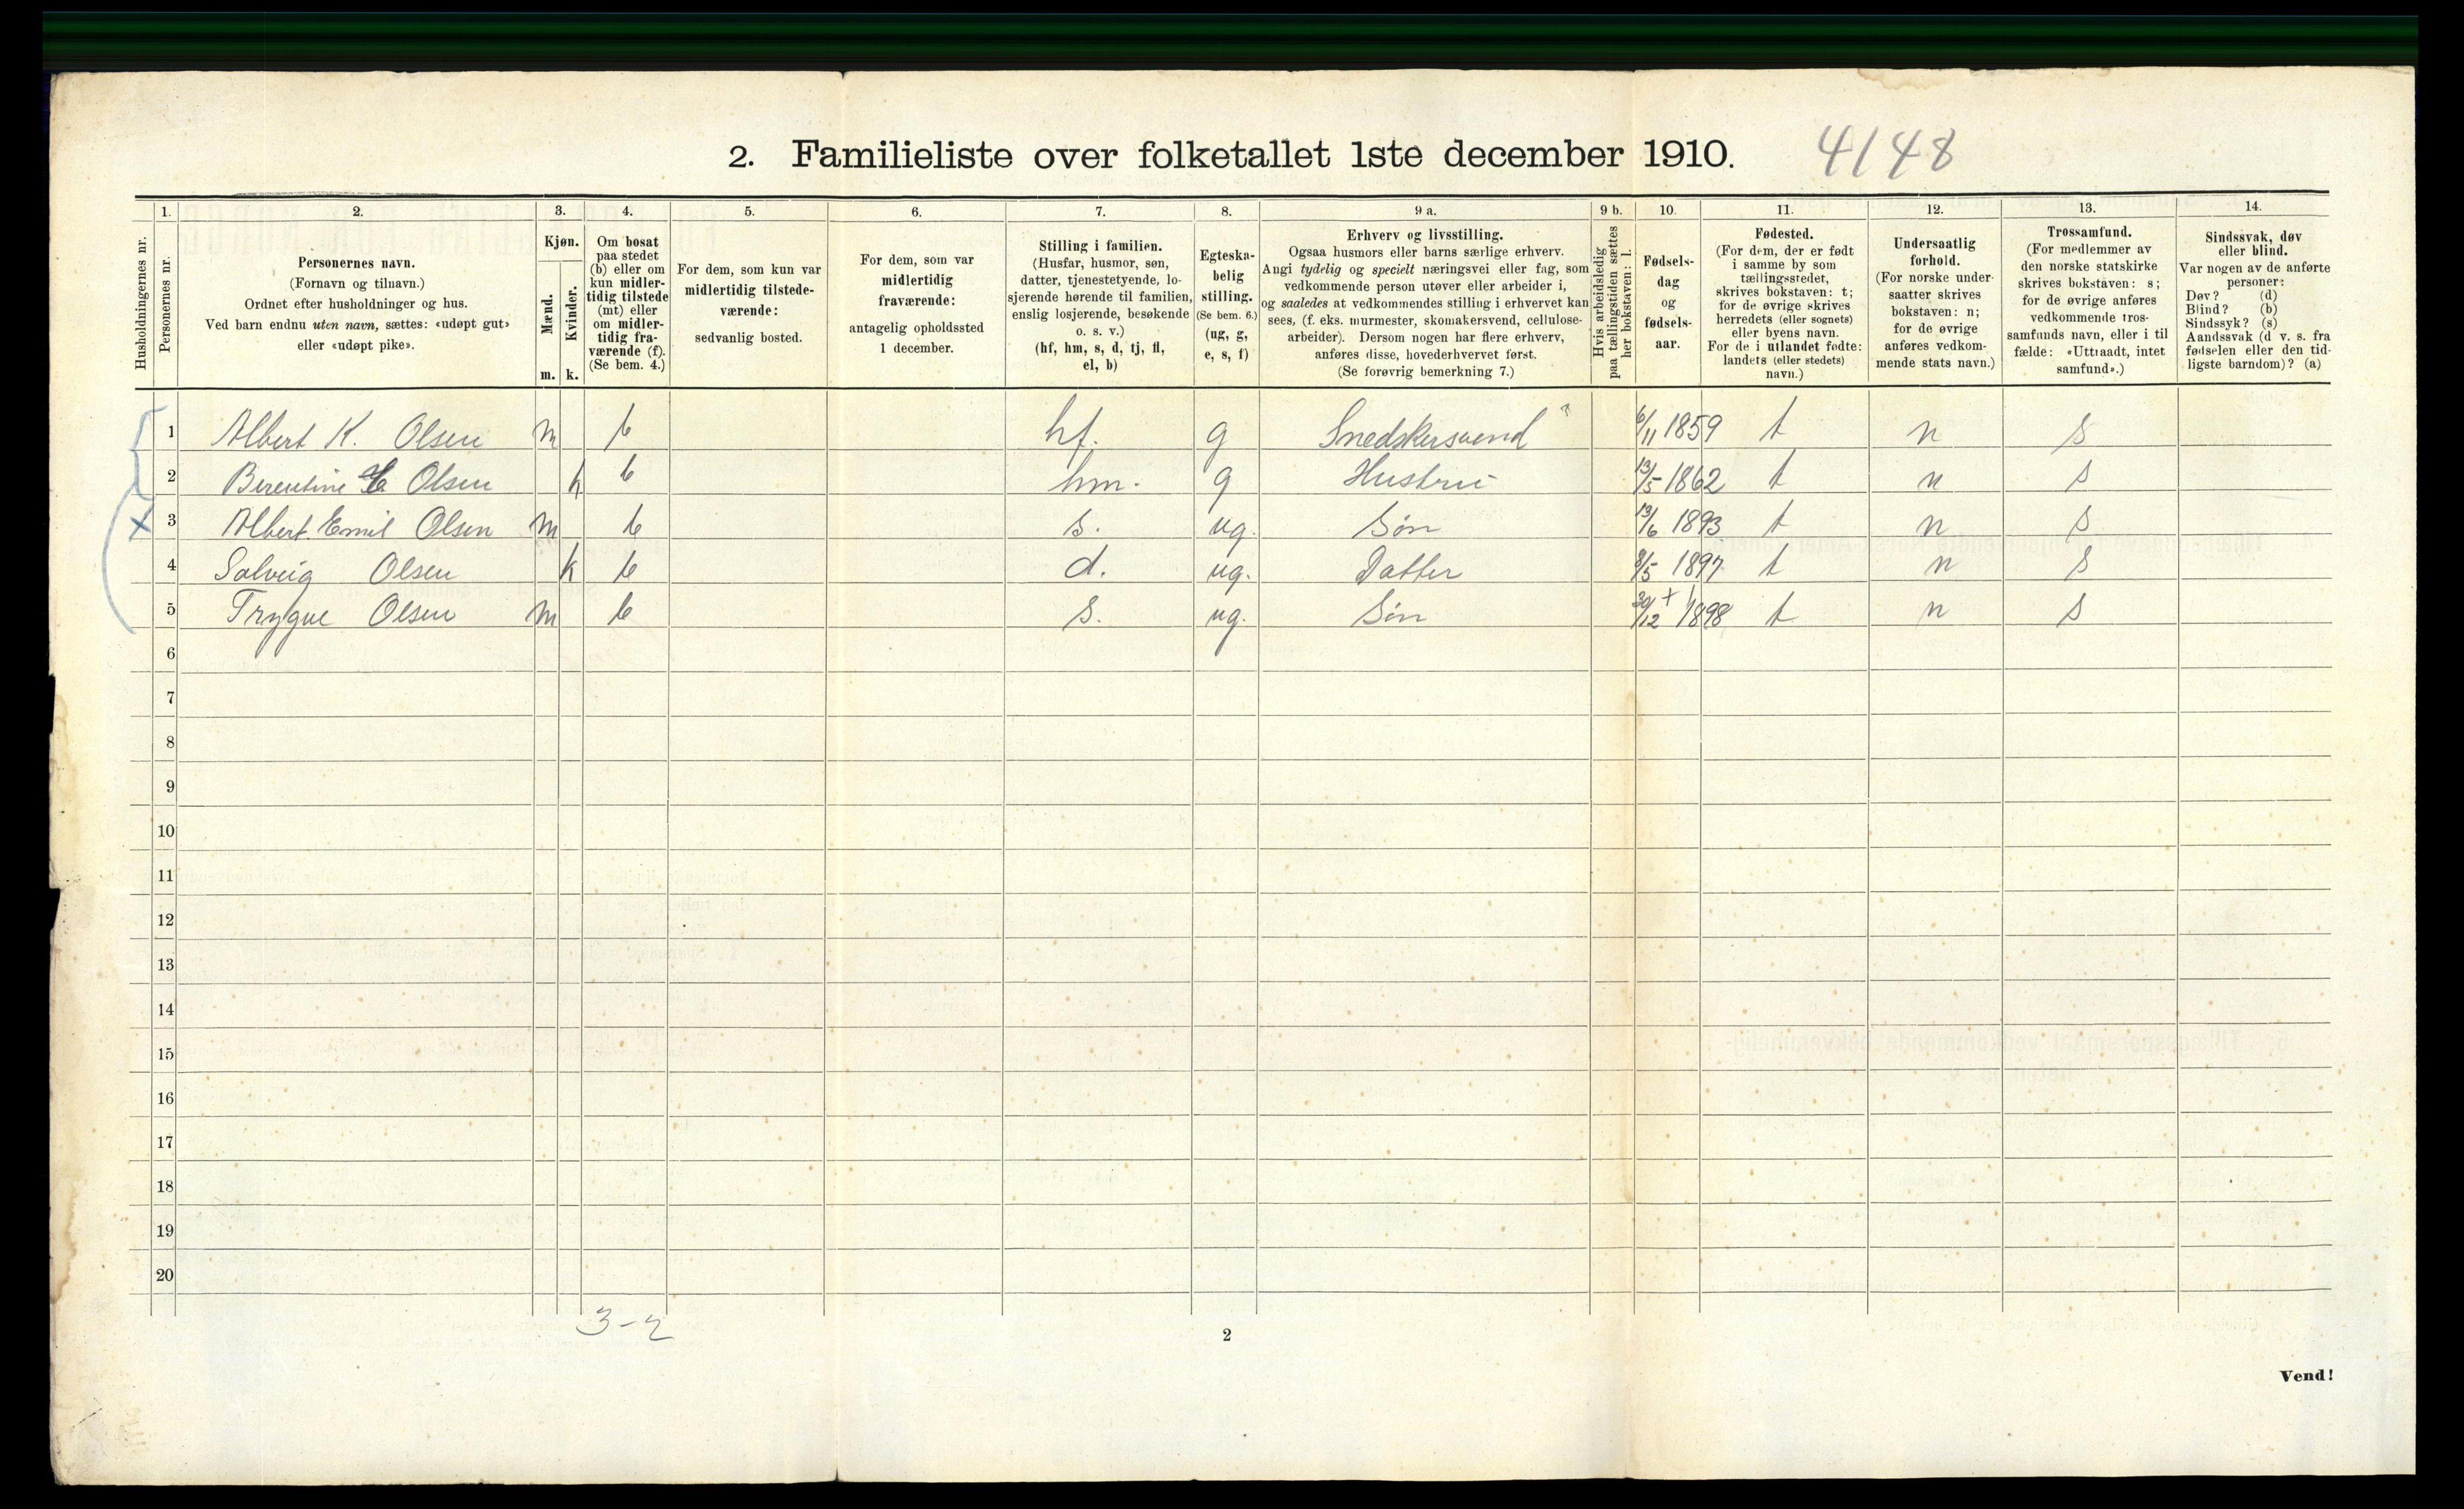 2. Familieliste over folketallet 1ste december 1910. 4148
1. 2. 3. 4. 5. 6. 7. 8. 9 a. 9 b. 10. 11. 12. 13. 14.
Husholdningernes nr.
Personernes nr.
Personernes navn.
(Fornavn og tilnavn.)
Ordnet efter husholdninger og hus.
Ved barn endnu uten navn, sættes: «udøpt gut»
eller «udøpt pike».
Kjøn.
Mænd.
m.
Kvinder.
k.
Om bosat
paa stedet
(b) eller om
kun midler-
tidig tilstede
(mt) eller
om midler-
tidig fra-
værende (f).
(Se bem. 4.)
For dem, som kun var
midlertidig tilstede-
værende:
sedvanlig bosted.
For dem, som var
midlertidig
fraværende:
antagelig opholdssted
1 december.
Stilling i familien.
(Husfar, husmor, søn,
datter, tjenestetyende, lo-
sjerende hørende til familien,
enslig losjerende, besøkende
o. s. v.)
(hf, hm, s, d, tj, fl,
el, b)
Egteska-
belig
stilling.
(Se bem. 6.)
(ug, g,
e, s, f)
Erhverv og livsstilling.
Ogsaa husmors eller barns særlige erhverv.
Angi tydelig og specielt næringsvei eller fag, som
vedkommende person utøver eller arbeider i,
og saaledes at vedkommendes stilling i erhvervet kan
sees, (f. eks. murmester, skomakersvend, cellulose-
arbeider). Dersom nogen har flere erhverv,
anføres disse, hovederhvervet først.
(Se forøvrig bemerkning 7.)
Hvis arbeidsledig
paa tællingstiden sættes
her bokstaven: l.
Fødsels-
dag
og
fødsels-
aar.
Fødested.
(For dem, der er født
i samme by som
tællingsstedet,
skrives bokstaven: t;
for de øvrige skrives
herredets (eller sognets)
eller byens navn.
For de i utlandet fødte:
landets (eller stedets)
navn.)
Undersaatlig
forhold.
(For norske under-
saatter skrives
bokstaven: n;
for de øvrige
anføres vedkom-
mende stats navn.)
Trossamfund.
(For medlemmer av
den norske statskirke
skrives bokstaven: s;
for de øvrige anføres
vedkommende tros-
samfunds navn, eller i til
fælde: «Uttraadt, intet
samfund».)
Sindssvak, døv
eller blind.
Var nogen av de anførte
personer:
Døv? (d)
Blind? (b)
Sindssyk? (s)
Aandssvak (d v. s. fra
fødselen eller den tid-
ligste barndom)? (a)
1 Albert K. Olsen m b hf. g Snedskersvend 6/11 1859 t n s
2 Berentine Olsen k b hm. g Hustru 13/5 1862 t n s
3 Albert Emil Olsen m b s. ug. Søn 13/6 1893 t n s
4 Solveig Olsen k b d. ug. Datter 8/5 1897 t n s
5 Trygve Olsen m b s. ug. Søn 30/12 1898 t n s
6
7
8
9
10
11
12
13
14
15
16
17
18
19
20
3-2
2
Vend!